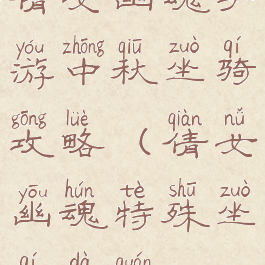 倩女幽魂手
yóu zhōng qiū zuò qí
游中秋坐骑
gōng lüè qiàn nǚ
攻略（倩女
yōu hún tè shū zuò
幽魂特殊坐
qí dà quán